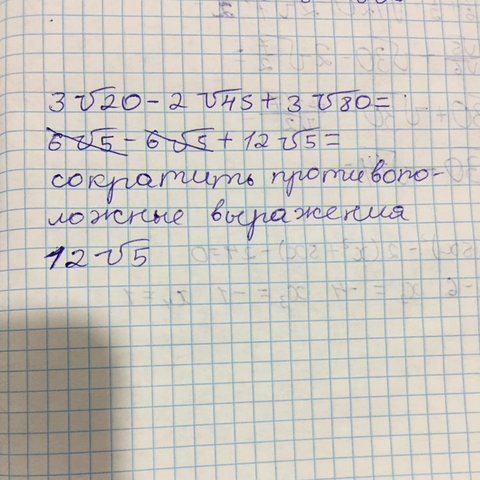 3√20 - 2√45 + 3√80 =
6√5 - 6√5 + 12√5 =
сократить противопо-
ложные выражения
12√5